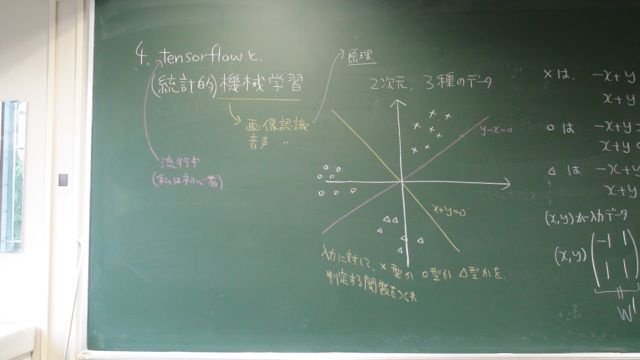 4. tensorflow と.
(統計的) 機械学習
原理
画像認識
音声 〃
流行中
(私は初心者)
2次元, 3種のデータ
y-x=0
x+y=0
入力に対して, ×型か ○型か △型かを,
判定する関数をつくれ
×は, -x+y
x+y
○は -x+y
x+y <
△は -x+y
x+y
(x,y)が入力データ
(x,y) (-1 1
1 1)
W